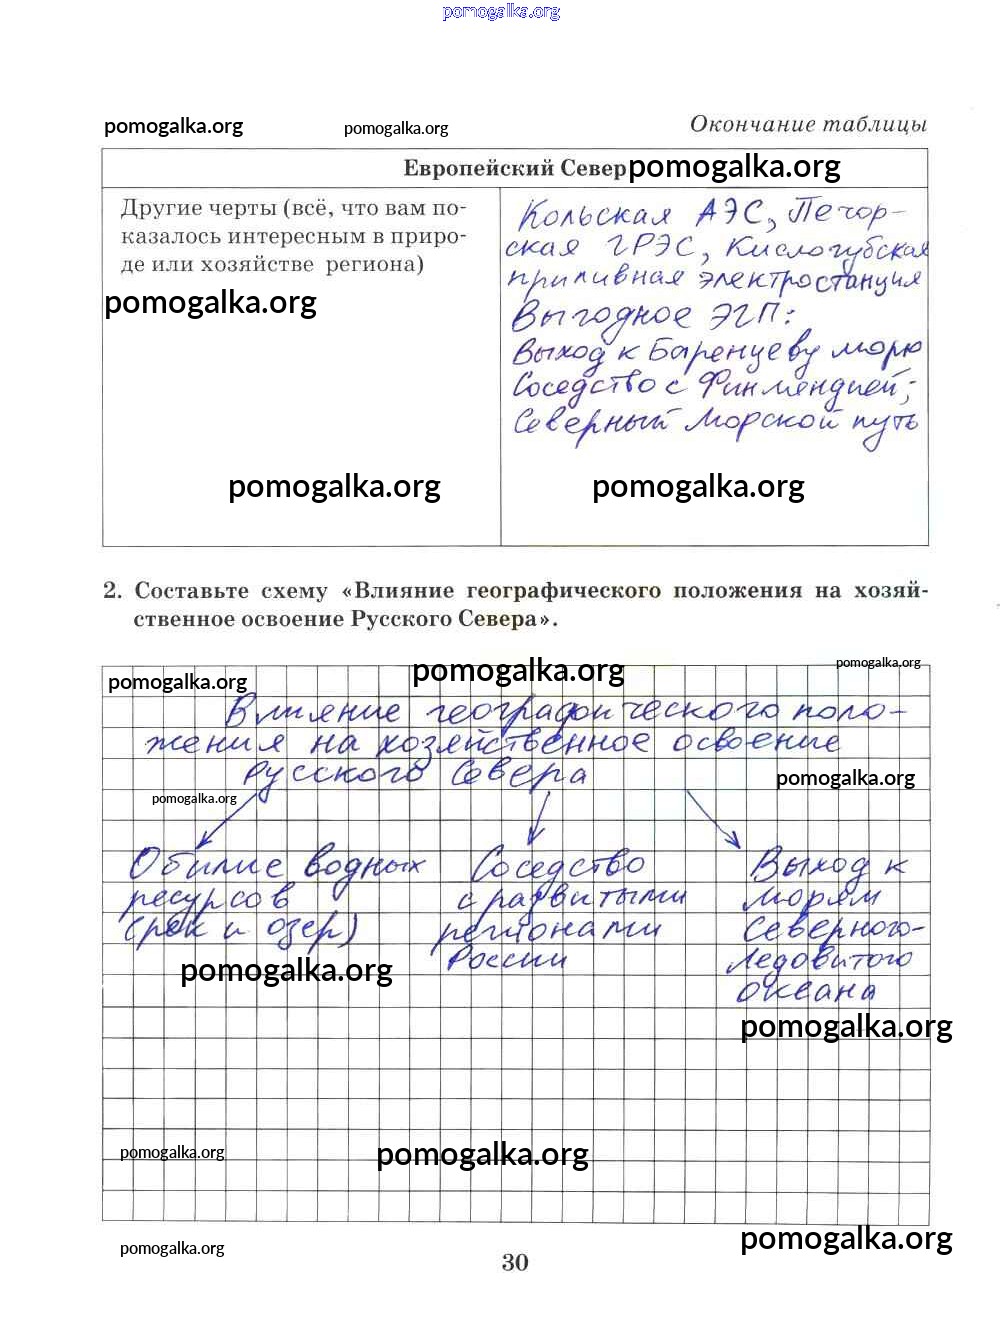 pomogalka.org
pomogalka.org
pomogalka.org
Окончание таблицы
Европейский Север
pomogalka.org
Другие черты (всё, что вам по-
казалось интересным в приро-
де или хозяйстве региона)
pomogalka.org
Кольская АЭС, Печор-
ская ГРЭС, Кислогубская
приливная электростанция
Выгодное ЭГП:
Выход к Баренцеву морю
Соседство с Финляндией;
Северный морской путь
pomogalka.org
pomogalka.org
2. Составьте схему «Влияние географического положения на хозяй-
ственное освоение Русского Севера».
pomogalka.org
pomogalka.org
pomogalka.org
Влияние географического поло-
жения на хозяйственное освоение
Русского Севера
pomogalka.org
pomogalka.org
Обилие водных
ресурсов
(рек и озер)
Соседство
с развитыми
регионами
России
Выход к
морям
Северного-
Ледовитого
океана
pomogalka.org
pomogalka.org
pomogalka.org
pomogalka.org
pomogalka.org
pomogalka.org
30